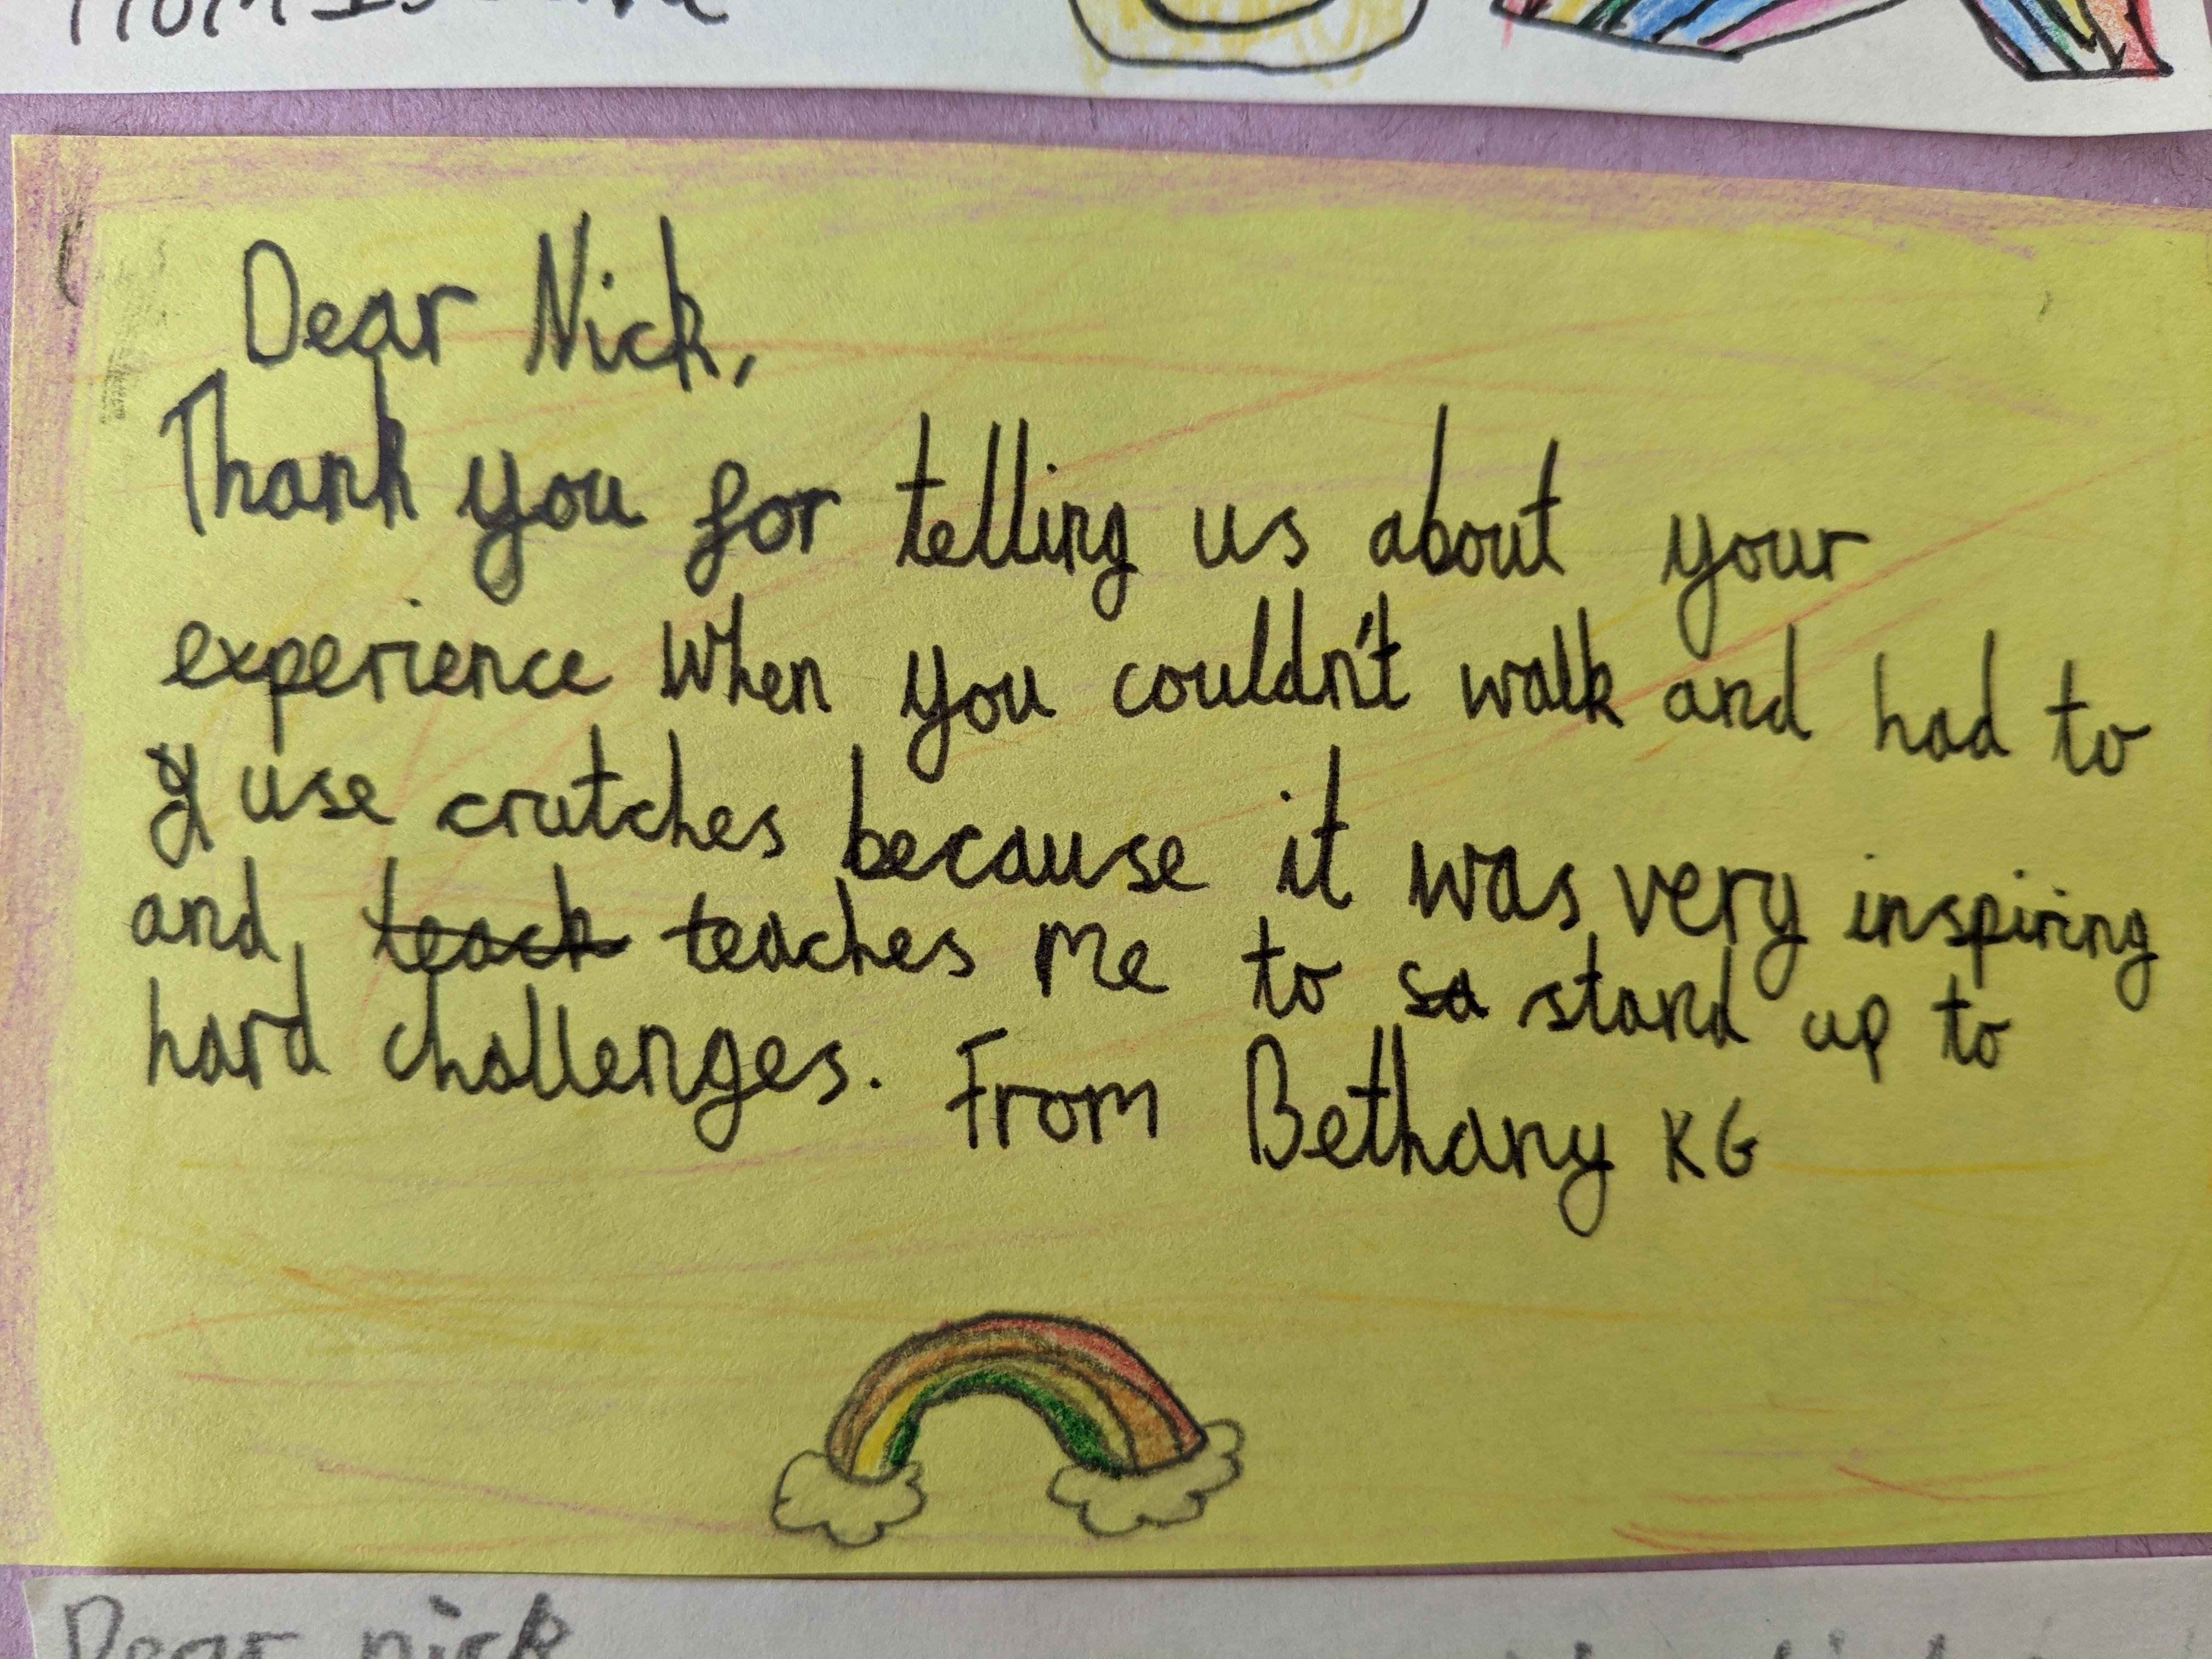 Dear Nick,
Thank you for telling us about your
experience when you couldn't walk and had to
use crutches because it was very inspiring
and teach teaches me to sa stand up to
hard challenges. From Bethany KG
Dear nick